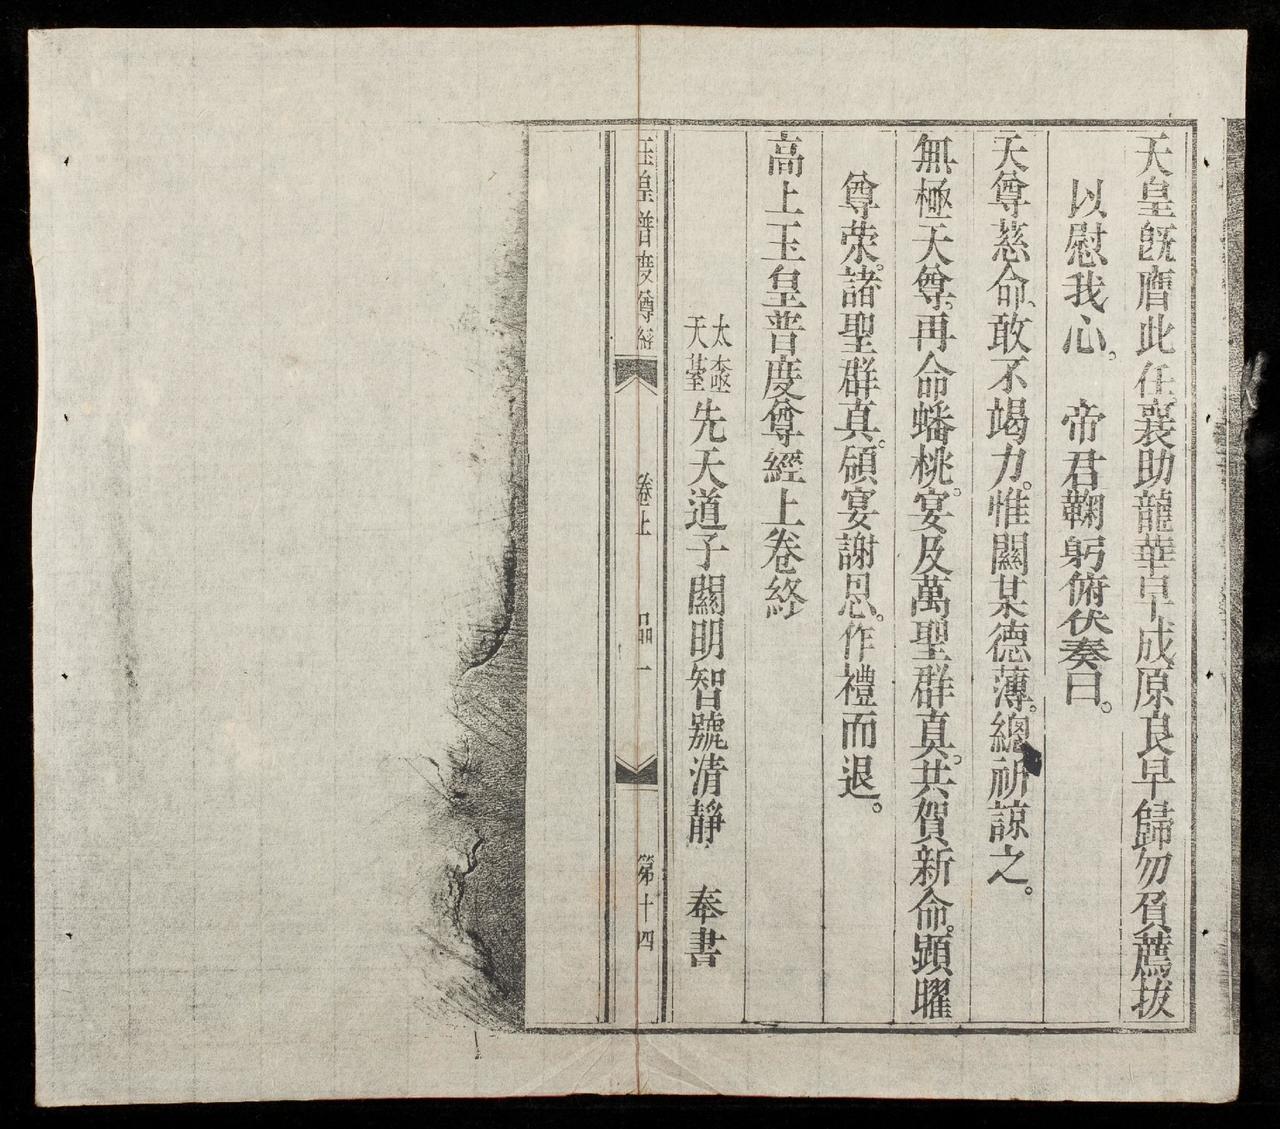 天皇既膺此任。襄助龍華早成。原良早歸。勿負薦拔
以慰我心。　帝君鞠躬俯伏奏曰。
天尊慈命、敢不竭力。惟關某德薄。總祈諒之。
無極天尊。再命蟠桃宴。及萬聖群真。共賀新命。顯曜
尊荣。諸聖群真。領宴謝恩。作禮而退。
高上玉皇普度尊經上卷終
太
天
先天道子關明智號清靜　奉書
玉皇普度尊經　卷上　品一　第十四